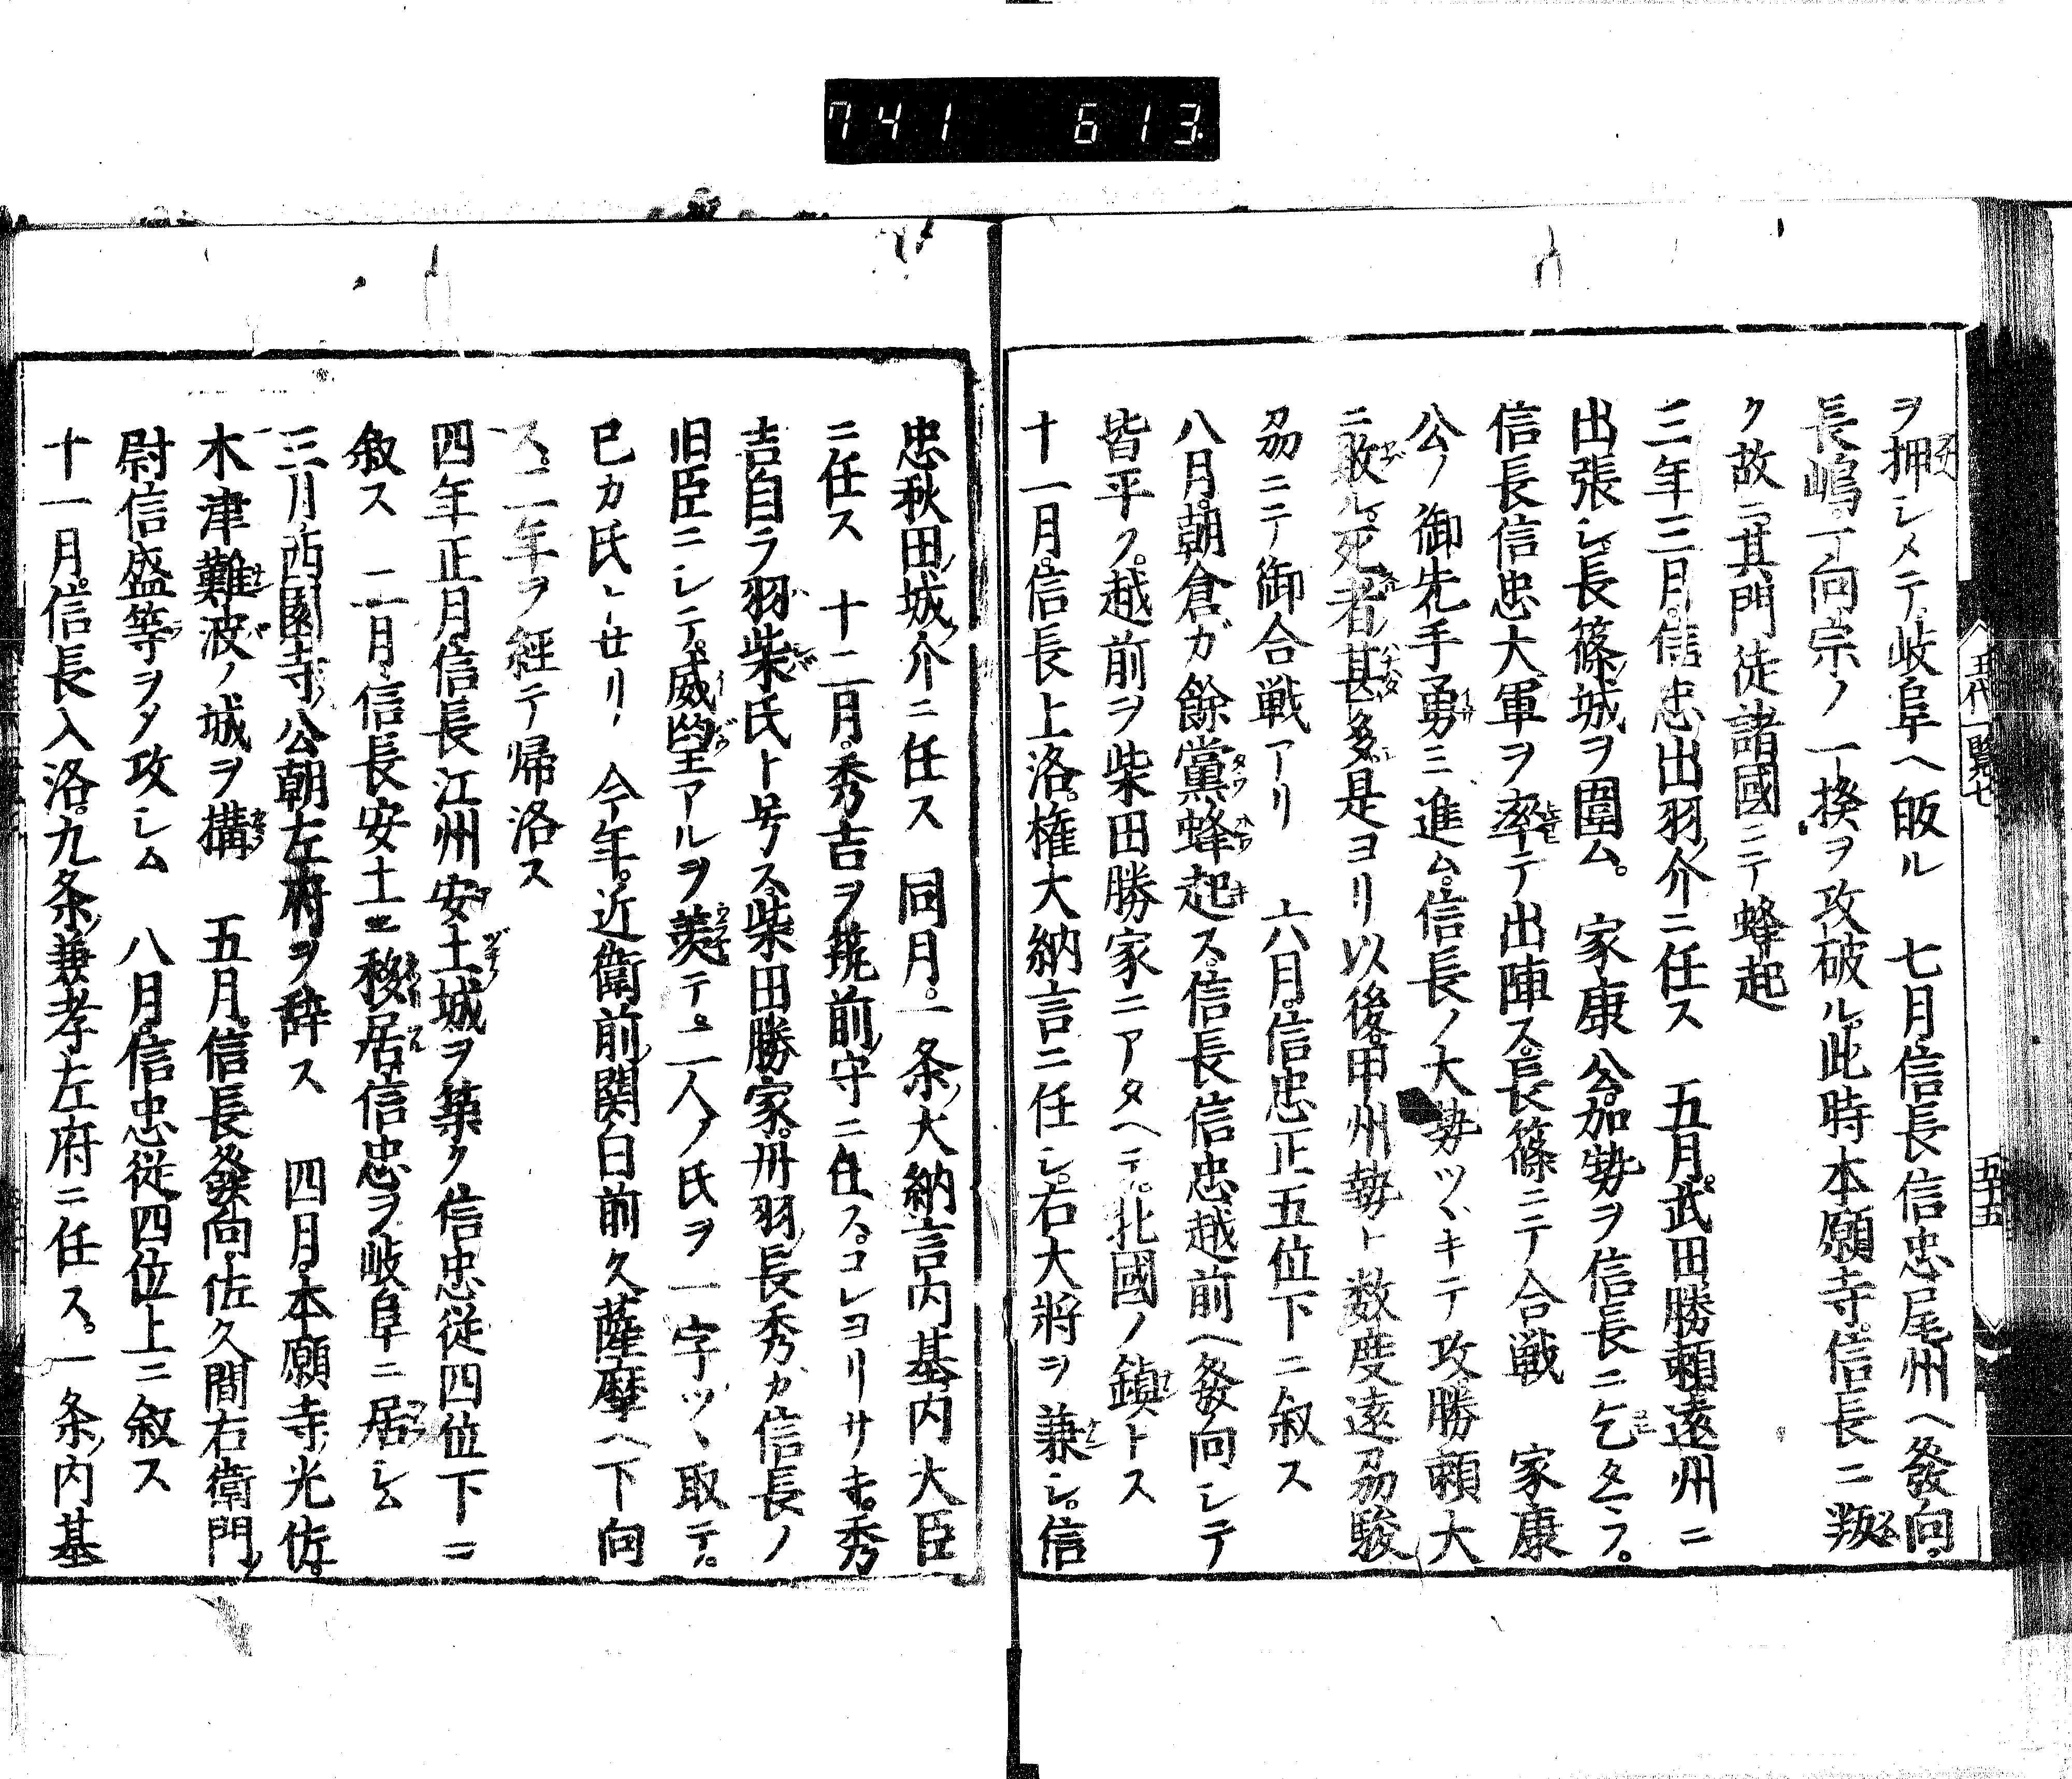 741 613
ヲ押シメテ岐阜ヘ皈ル 七月信長信忠尾州ヘ發向。
長嶋一向宗ノ一揆ヲ攻破ル此時本願寺信長ニ叛
ク故ニ其門徒諸國ニテ蜂起
三年三月。信忠出羽介ニ任ス 五月。武田勝頼遠州ニ
出張シ長篠城ヲ圍ム。 家康公加勢ヲ信長ニ乞タマフ。
信長信忠大軍ヲ率テ出陣ス。長篠ニテ合戦 家康
公ノ御先手勇ミ進ム。信長ノ大勢ツヽキテ攻勝頼大
ニ敗ル。死者甚多是ヨリ以後甲州勢ト数度遠刕駿
刕ニテ御合戦アリ 六月。信忠正五位下ニ叙ス
八月。朝倉ガ餘黨蜂起ス。信長信忠越前ヘ發向シテ
皆平ク。越前ヲ柴田勝家ニアタヘテ。北國ノ鎮トス
十一月。信長上洛。権大納言ニ任シ。右大將ヲ兼シ。信
五代一覧七 五十五
忠秋田城介ニ任ス 同月。一条大納言内基内大臣
ニ任ス 十二月。秀吉ヲ筑前守ニ任ス。コレヨリサキ。秀
吉自ラ羽柴氏ト号ス。柴田勝家。丹羽長秀ガ信長ノ
旧臣ニシテ。威望アルヲ羨テ。二人ノ氏ヲ一字ツヽ取テ。
已カ氏トセリ 今年。近衛前関白前久薩摩ヘ下向
ス。二年ヲ經テ帰洛ス
四年正月信長江州安土城ヲ築ク信忠従四位下ニ
叙ス 二月信長安土ニ移居信忠ヲ岐阜ニ居シム
三月西園寺公朝左府ヲ辞ス 四月。本願寺光佐。
木津難波ノ城ヲ構 五月。信長發向佐久間右衛門
尉信盛等ヲメ攻シム 八月。信忠従四位上ニ叙ス
十一月。信長入洛。九条兼孝左府ニ任ス。一条内基